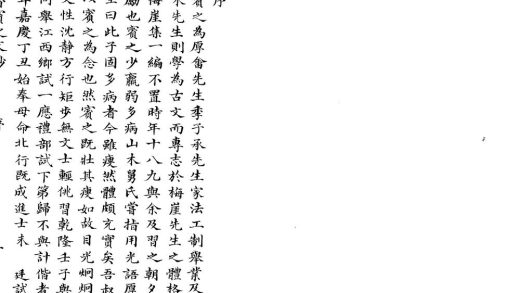 序
賓之為原畬先生季子承先生家法工制舉業及
承先生則學為古文而專志於梅崖先生之體格
梅崖集一編不置時年十八九與余及習之朝夕
勵也賓之少羸弱多病山木舅氏嘗指用光語原
生曰此子固多病者今雖瘦然體頗充實矣吾叔
以賓之為念也然賓之既壯其瘦如故目光炯炯
文性沈靜方行矩步無文士輕佻習乾隆壬子與
同舉江西鄉試一應禮部試下第歸不與計偕者
年嘉慶丁丑始奉母命北行既成進士未 廷試
賓之文鈔 序